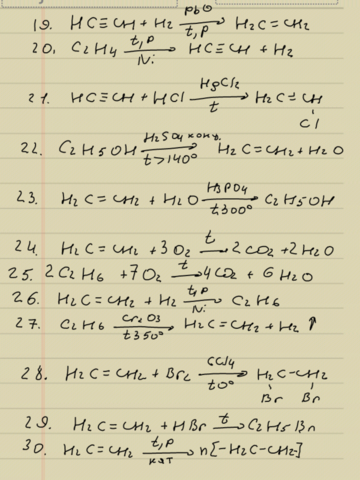 19. HC≡CH + H2 PbO t,p H2C=CH2
20. C2H4 t,p Ni HC≡CH + H2
21. HC≡CH + HCl HgCl2 t H2C=CH
Cl
22. C2H5OH H2SO4 конц. t>140° H2C=CH2+H2O
23. H2C=CH2 + H2O H3PO4 t,300° C2H5OH
24. H2C=CH2 +3O2 t 2CO2+2H2O
25. 2C2H6 +7O2 t 4CO2 + 6H2O
26. H2C=CH2 + H2 t,p Ni C2H6
27. C2H6 Cr2O3 t350° H2C=CH2 + H2 ↑
28. H2C=CH2 + Br2 CCl4 t0° H2C-CH2
Br Br
29. H2C=CH2 + HBr t C2H5Br
30. H2C=CH2 t,p кат n[-H2C-CH2-]